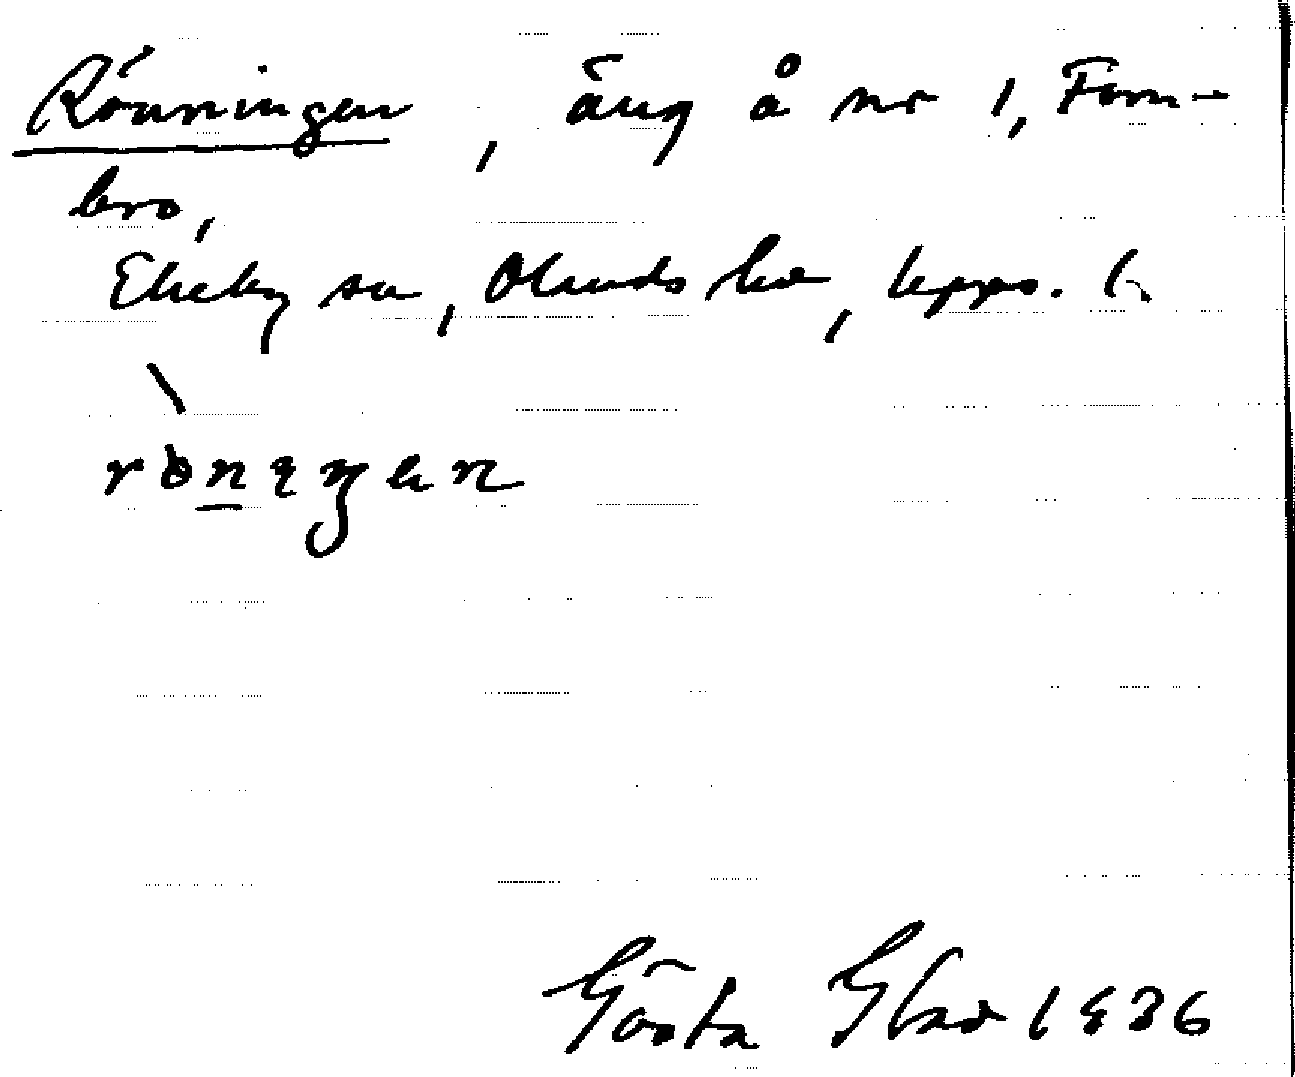 Rönningen, äng å nr 1, Forn-
bro,
Ekeby sn, Olands hd, Upps. l.
rönıŋen
Gösta Blad 1936